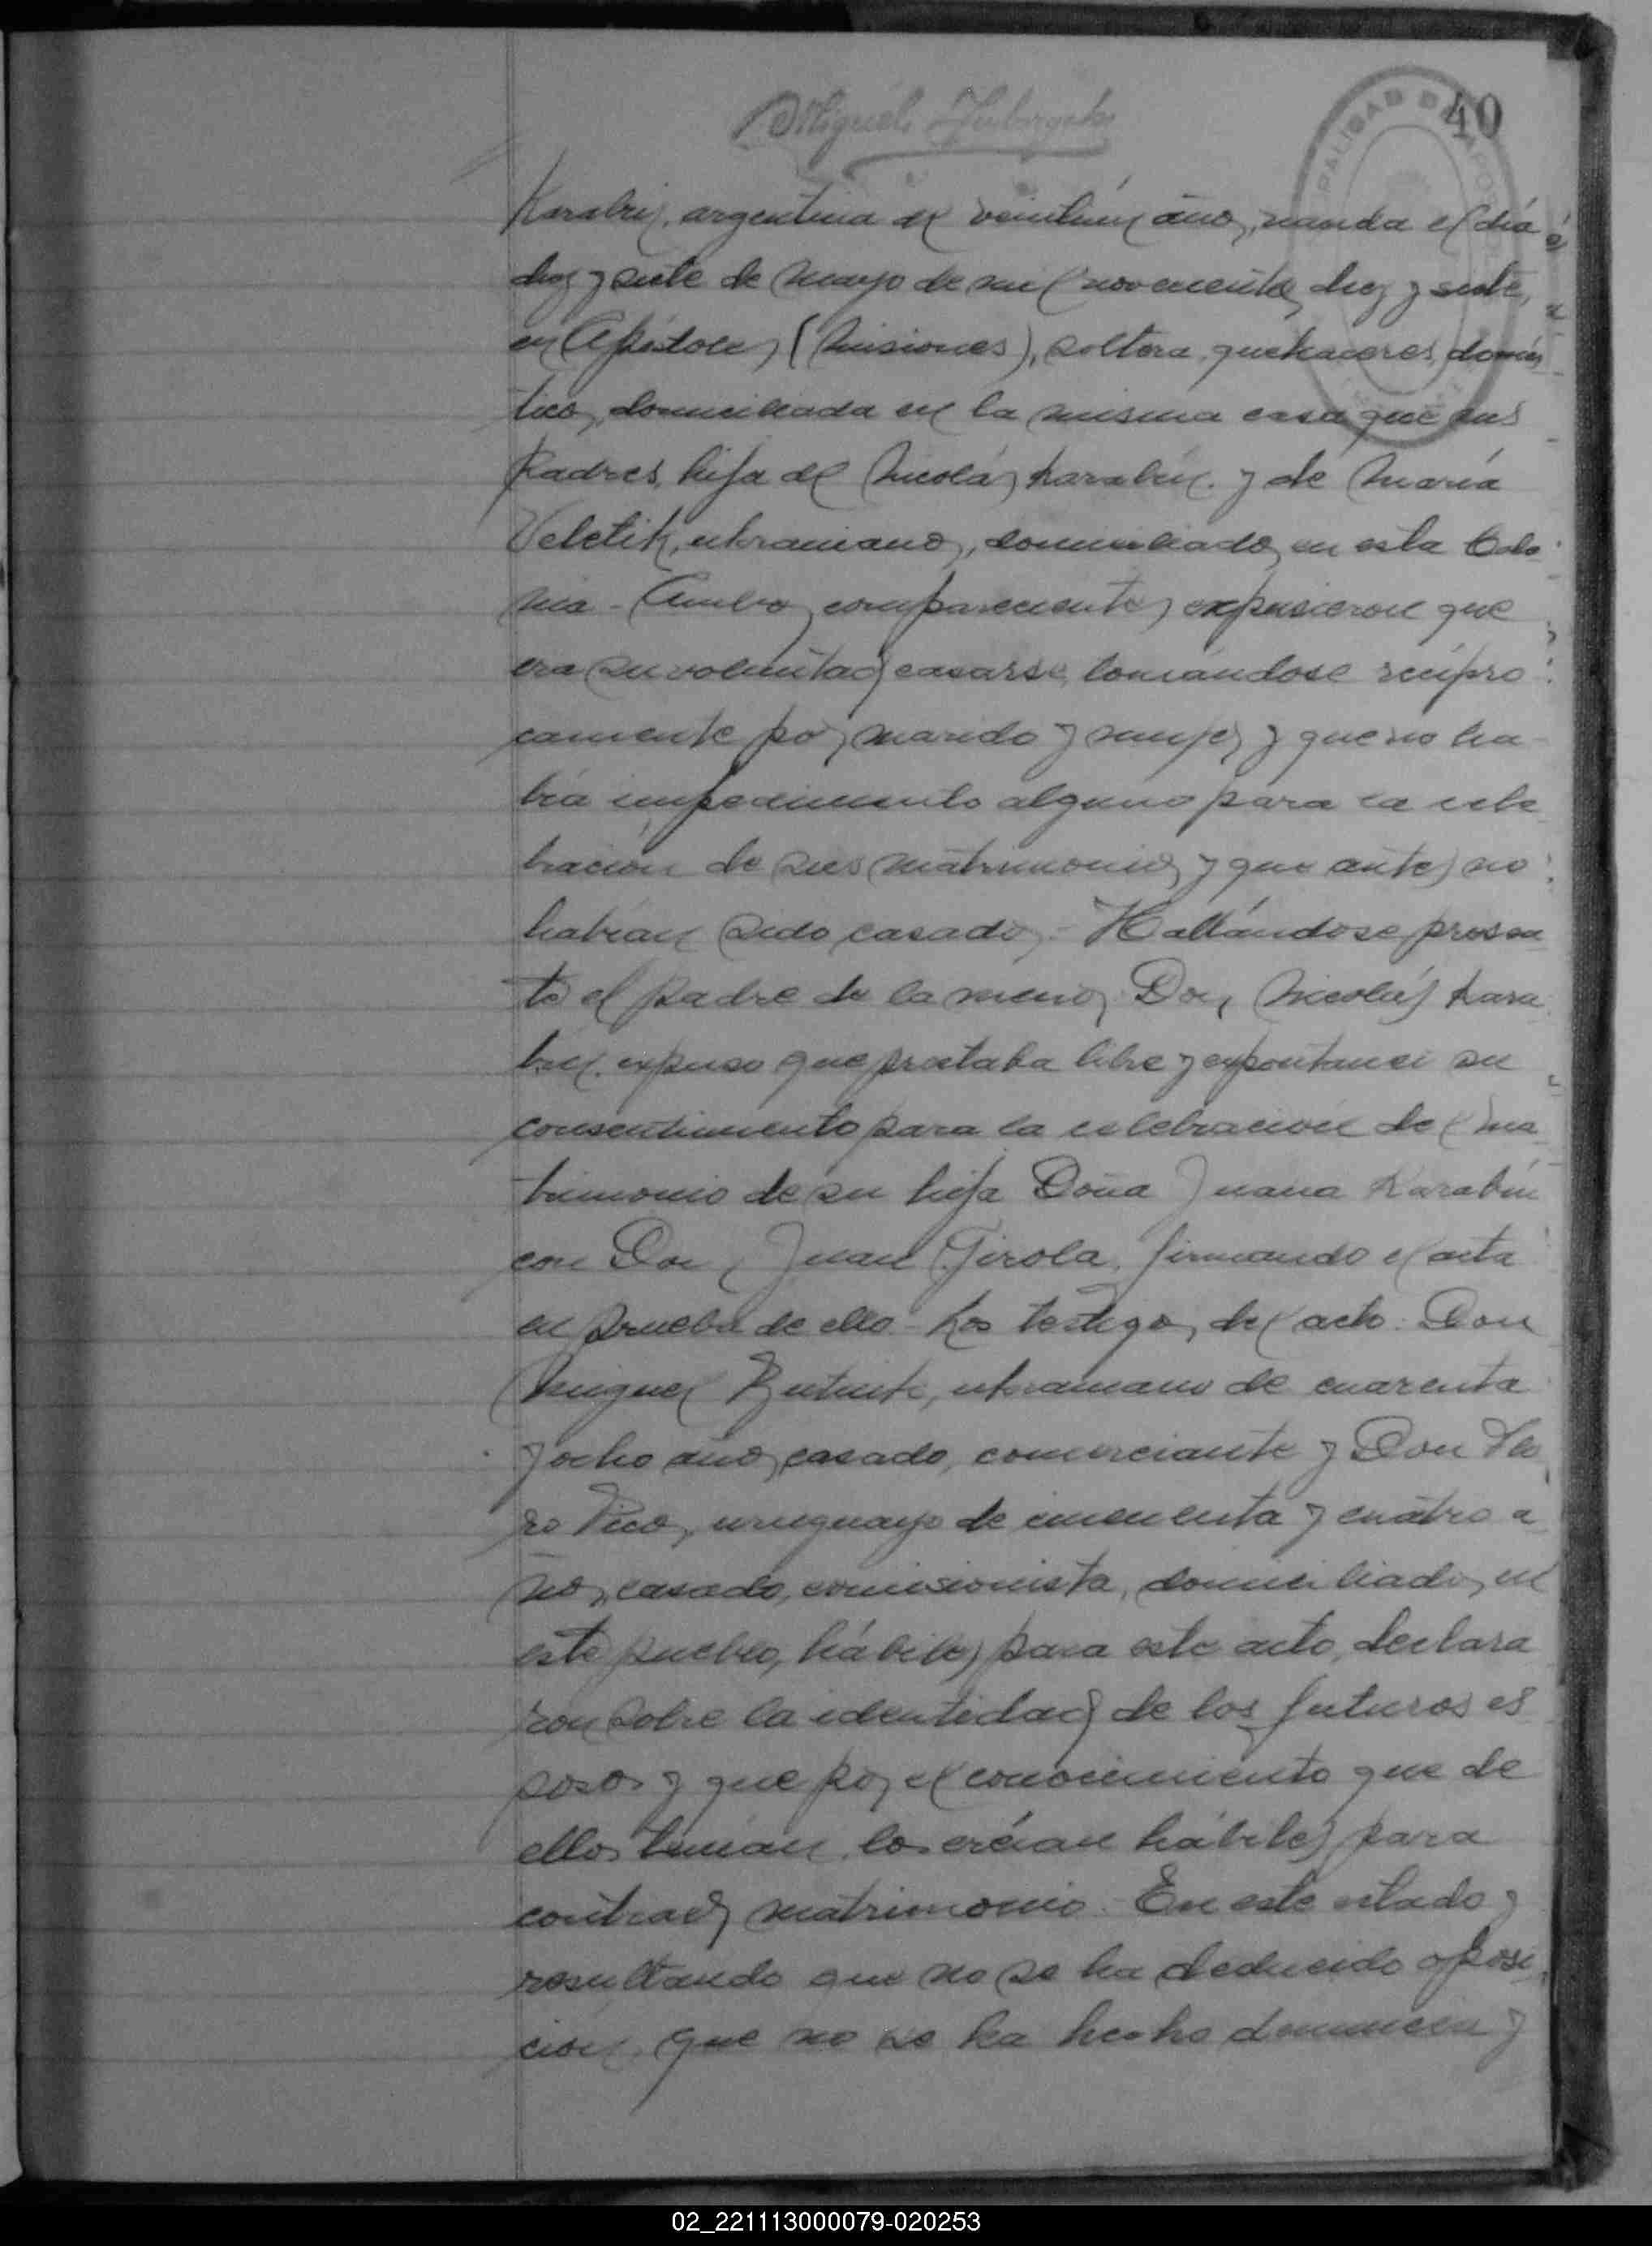 40
MUNICIPALIDAD DE APOSTOLES
Miguel
Karabin, argentina de veintiún años, nacida el día
diez y siete de mayo de mil novecientos diez y siete,
en Apóstoles (Misiones), soltera, quehaceres domés
ticos, domiciliada en la misma casa que sus
padres, hija de Nicolás Karabin y de María
Veletik, ukranianos, domiciliados en esta Colo
nia - Ambos comparecientes expusieron que
era su voluntad casarse, tomándose recipro
camente por marido y mujer y que no ha-
bía impedimento alguno para la cele
bración de sus matrimonios y que antes no
habían sido casados. - Hallándose presen
te el padre de la menor, Don Nicolás Kara
bin, expuso que prestaba libre y espontanei su
consentimiento para la celebración del ma
trimonio de su hija Doña Juana Karabin
con Don Juan Girola, firmando el acta
en prueba de ello - Los testigos del acto: Don
Miguel, ukraniano de cuarenta
y ocho años, casado, comerciante y Don
Pico, uruguayo de cincuenta y cuatro a
ños, casado, comisionista, domiciliados en
este pueblo, hábiles para este acto, declara
ron sobre la identidad de los futuros es
posos y que por el conocimiento que de
ellos tenían los creían hábiles para
contraer matrimonio. En este estado y
resultando que no se ha deducido oposi
ción, que no se ha hecho denuncia y
02_221113000079-020253